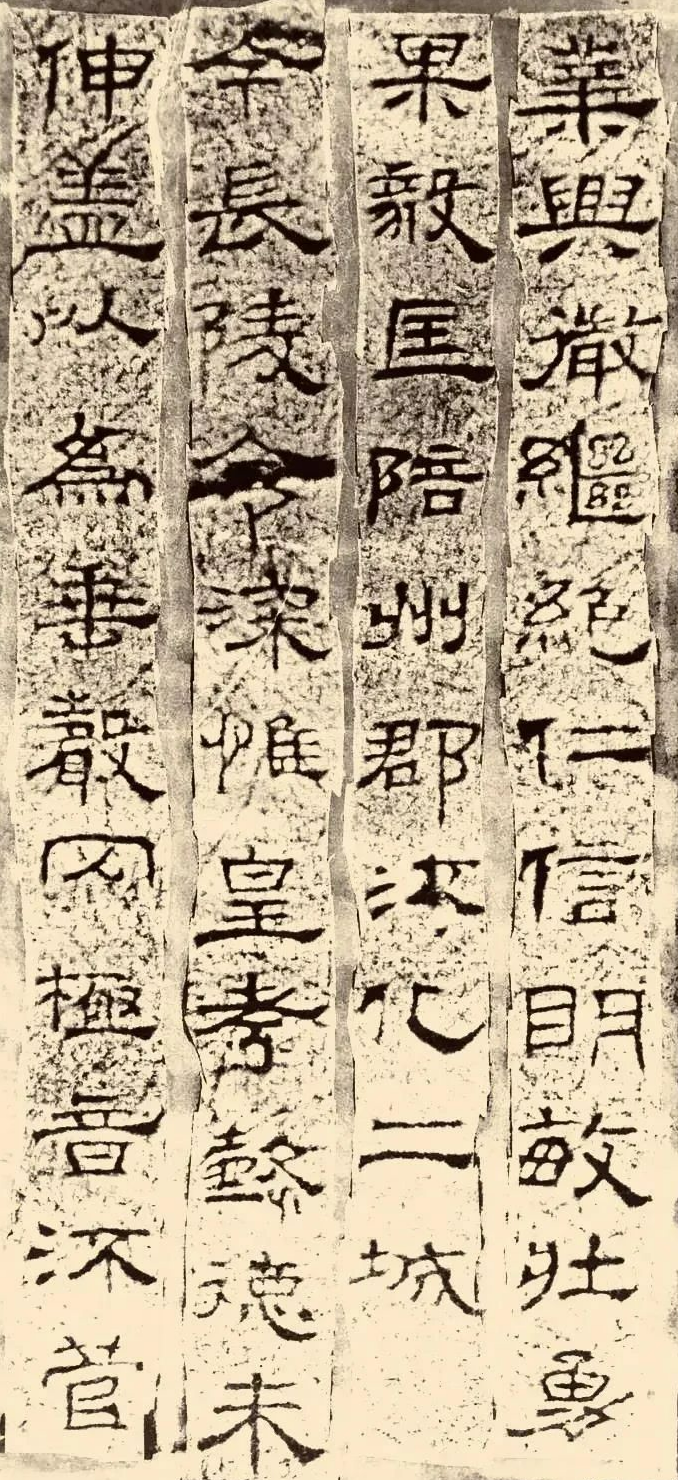 業興微繼絕仁信明敏壯勇
果毅匡陪州郡流化二城
今長陵令深惟皇考懿德未
伸蓋以為垂聲罔極音流管